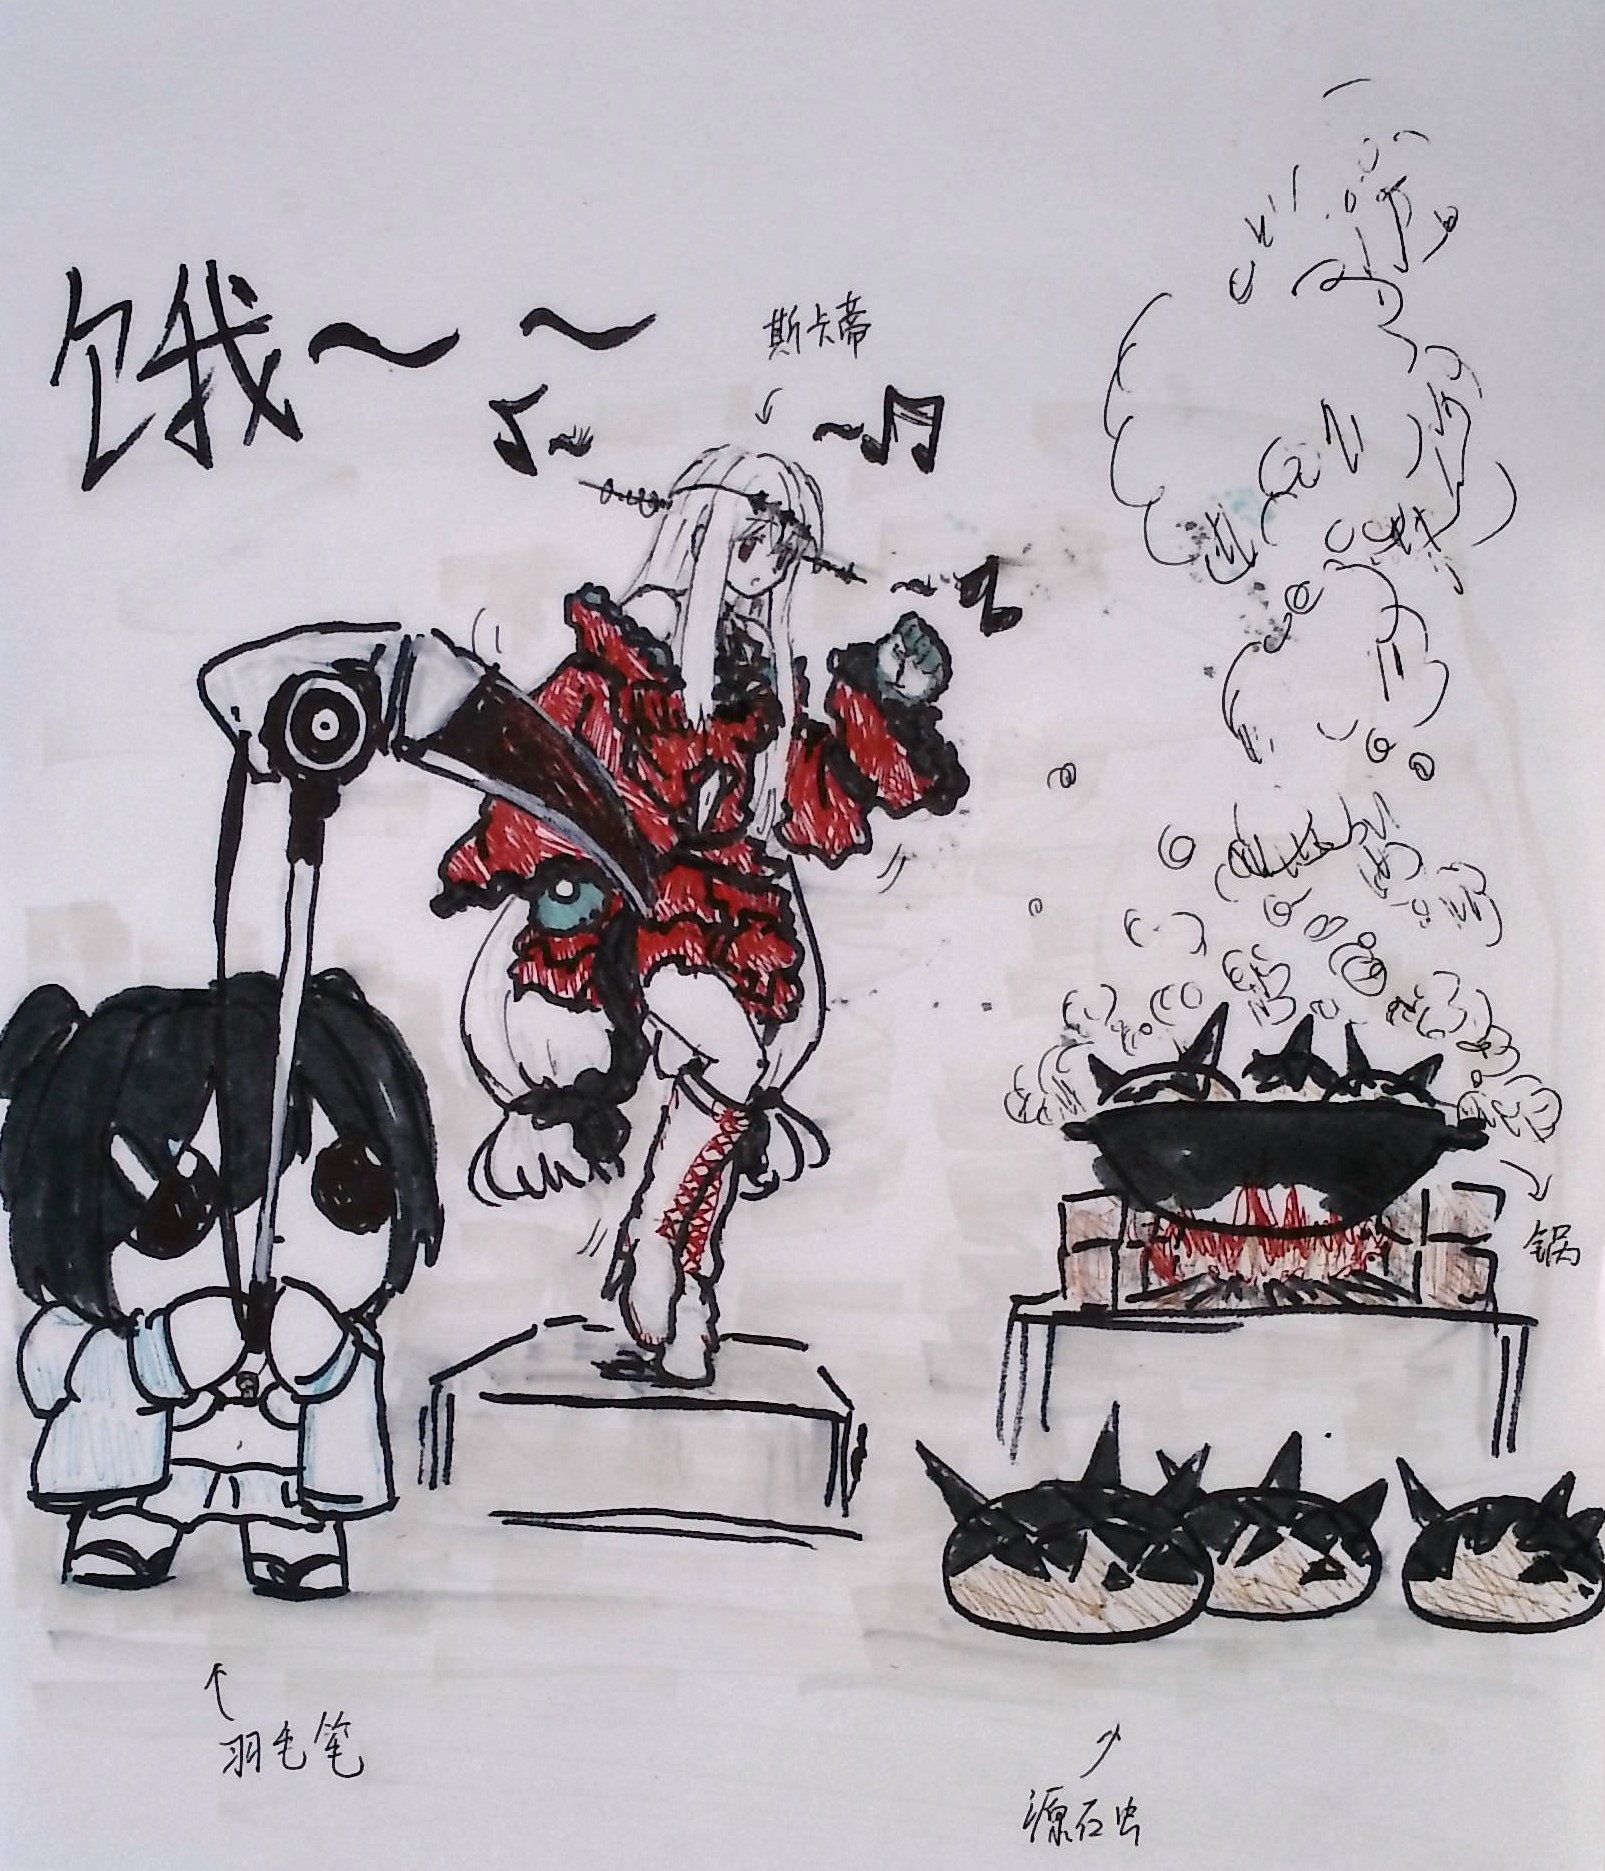 饿～～
斯卡蒂
锅
羽毛笔
源石虫